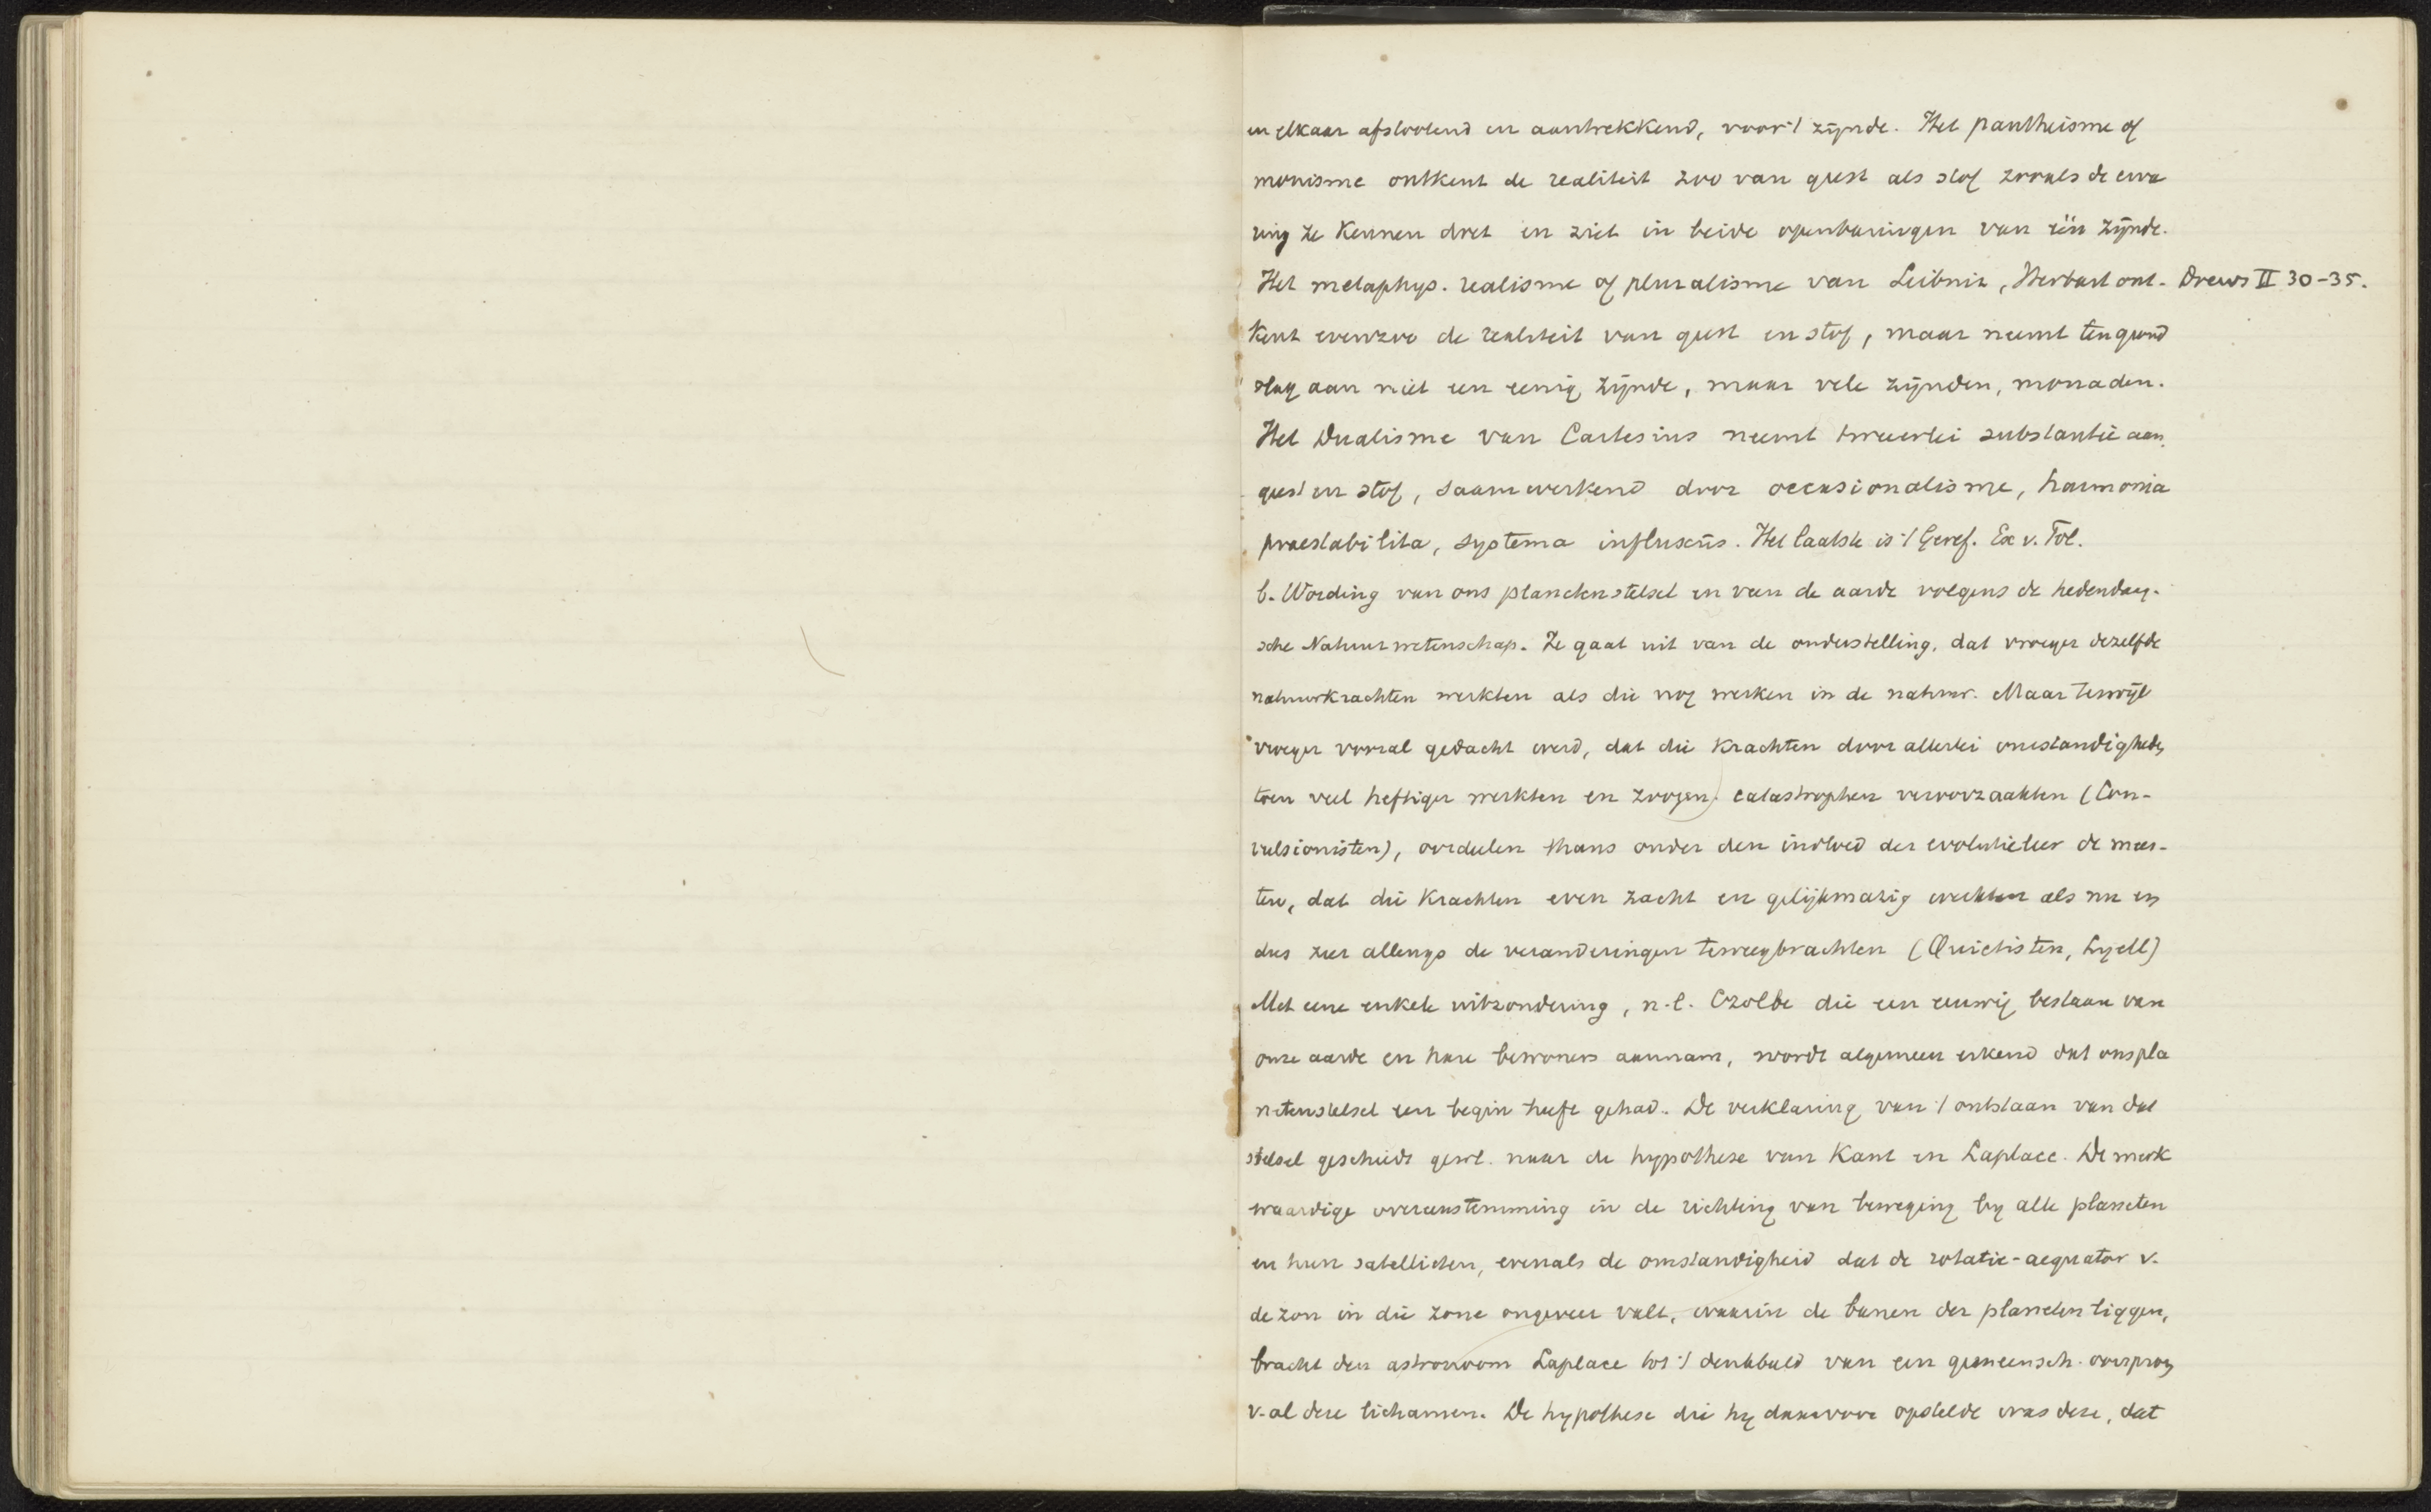 en elkaar afstootend en aantrekkend, voor 't zijnde. Het pantheisme of
monisme ontkent de realiteit zoo van geest als stof zooals de erva
ring ze kennen doet en ziet in beide openbaringen van één zijnde.
Het metaphys. realisme of pluralisme van Leibniz, Herbart ont- Drews II 30-35.
kent evenzoo de realiteit van geest en stof, maar neemt ten grond
slag aan niet een eenig zijnde, maar vele zijnden, monaden.
Het Dualisme van Cartesius neemt tweeerlei substantie aan,
geest en stof, saamwerkend door occasionalisme, harmonia
praestabilita, systema influxus. Het laatste is 't Geref. Ex v. Tol.
b. Wording van ons planetenstelsel en van de aarde volgens de hedendaag-
sche Natuurwetenschap. Ze gaat uit van de onderstelling, dat vroeger dezelfde
natuurkrachten werkten als die nog werken in de natuur. Maar terwijl
vroeger vooral gedacht werd, dat die krachten door allerlei omstandigheden
toen veel heftiger werkten en zoogen. catastrophen veroorzaakten (Con-
vulsionisten), oordeelen thans onder den invloed der evolutieleer de mees-
ten, dat die krachten even zacht en gelijkmatig werkten als nu en
dus zeer allengs de veranderingen teweegbrachten (Quietisten, Lyell)
Met eene enkele uitzondering, n.l. Czolbe die een eeuwig bestaan van
onze aarde en hare bewoners aannam, wordt algemeen erkend dat ons pla
netenstelsel een begin heeft gehad. De verklaring van 't ontstaan van dat
stelsel geschiedt gewl. naar de hypothese van Kant en Laplace. De merk
waardige overeenstemming in de richting van beweging bij alle planeten
en hun satellieten, evenals de omstandigheid dat de rotatie-aequator v.
de zon in die zone ongeveer valt, waarin de banen der planeten liggen,
bracht den astronoom Laplace tot 't denkbeeld van een gemeensch. oorsprong
v. al deze lichamen. De hypothese die hij daarvoor opstelde was deze, dat